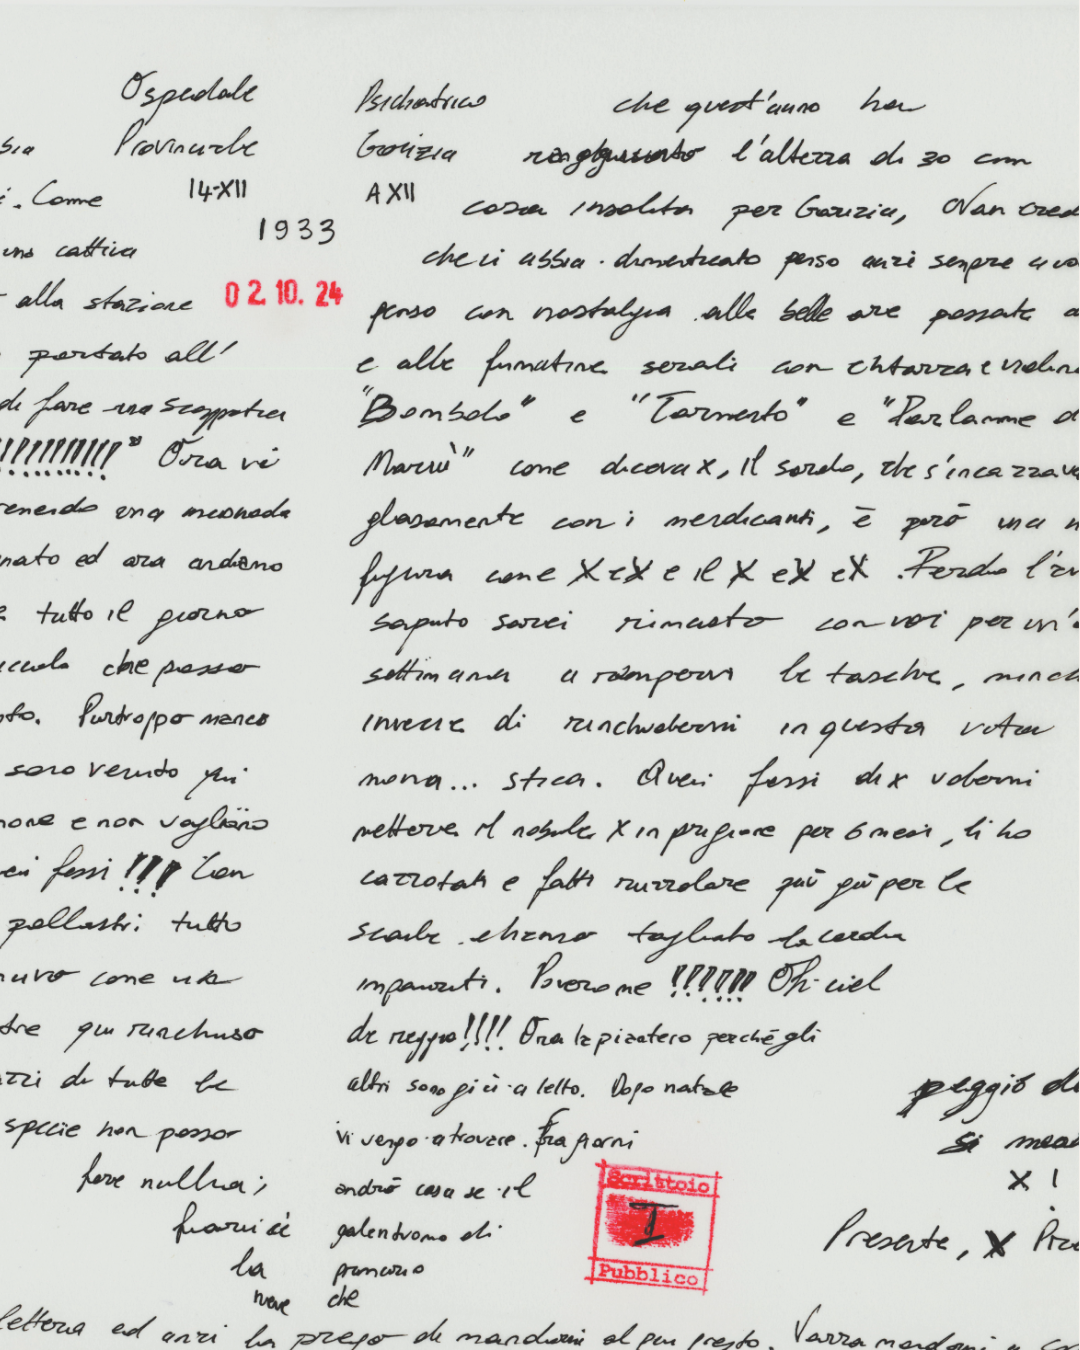 Ospedale
Provinciale
14-XII
1933
02.10.24
i. Come
una cattiva
alla stazione
portato all'
di fare una scappatea
!!!!!!!!!!!" Ora vi
tenendo una
nato ed ora andiamo
tutto il giorno
che posso
nto. Purtroppo manco
sono venuto qui
none e non vogliano
fessi !!! Con
pollastri tutto
nuvo come una
tre qui rinchiuso
di tutte le
specie non posso
fare nulla;
fuori c'è
la
neve
Psichiatrico
Gorizia
A XII
che quest'anno ha
raggiunto l'altezza di 30 cm
cosa insolita per Gorizia, Non cred
che vi abbia dimenticato penso anzi sempre a vo
penso con nostalgia alle belle ore passate a
e alle fumatine serali con chitarra e violin
"Bombolo" e "Tormento" e "Parlamme d
Mariù" come diceva X, Il sordo, che s'incazzava
gliosamente con i mendicanti, è però una
figura come X e X e il X e X e X. Perdio l'
saputo sarei rimasto con voi per un'
settimana a rompervi le tasche,
invece di rinchiudermi in questa vota
mona... stica. Quei fessi di X vedermi
mettere il nobile X in prigione per 6 mesi, li ho
carrotati e fatti ruzzolare giù giù per le
scale. tagliato la corda
impauriti. Poverome !!!!!!! Oh ciel
de reggio!!!! Ora la pianterò perchè gli
altri sono già a letto. Dopo natale
vi vengo a trovare. Fra giorni
andrò casa se il
galantuomo di
primario
che
Scrittoio
I
Pubblico
peggio d
si
X !
Presente, X
lettera ed anzi la prego di mandarmi al più presto. Vorrà mandarmi